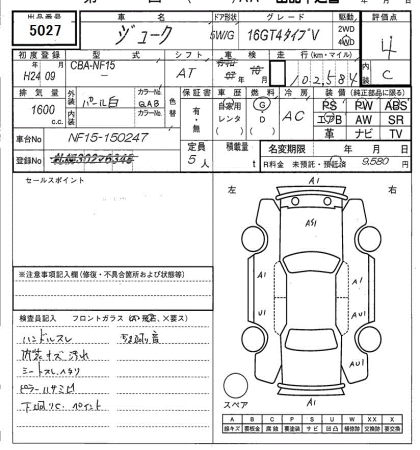 出品番号 車名 ドア形状 グレード 駆動 評価点
5027 ジューク 5W/G 16GT4タイプV 2WD 4WD 4
初度登録 型式 シフト 車検 走行(km・マイル) 内装
H24 年 09 月 CBA-NF15 AT 102,584 C
排気量 外装 カラーNo. 色替 保証書 車歴 燃料 冷房 装備(純正部品に限る)
1600 c.c. パール白 QAB 有・無 自家用 レンタ G D AC PS PW ABS
内装 カラーNo. エアB AW SR
革 ナビ TV
車台No NF15-150247 定員 5人 積載量 t 名変期限 年 月 日
登録No R料金 未預託・預託済 9,580
セールスポイント
左 右
A1
AS1
A1 A1
A1 AU1
AU1
A1
※注意事項記入欄(修復・不具合箇所および状態等)
検査員記入 フロントガラス
ハンドルスレ
内装キズ汚れ
シートスレ.ヘタリ
ピラーハサミ凹
スペア
A B C P S U W X XX
線キズ 看板金 腐蝕 要塗装 サビ 凹凸 補修跡 要交換 交換済